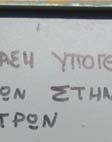 ΑΣΗ ΥΠΟΓΕ
ΩΝ ΣΤΗΝ
ΤΡΩΝ